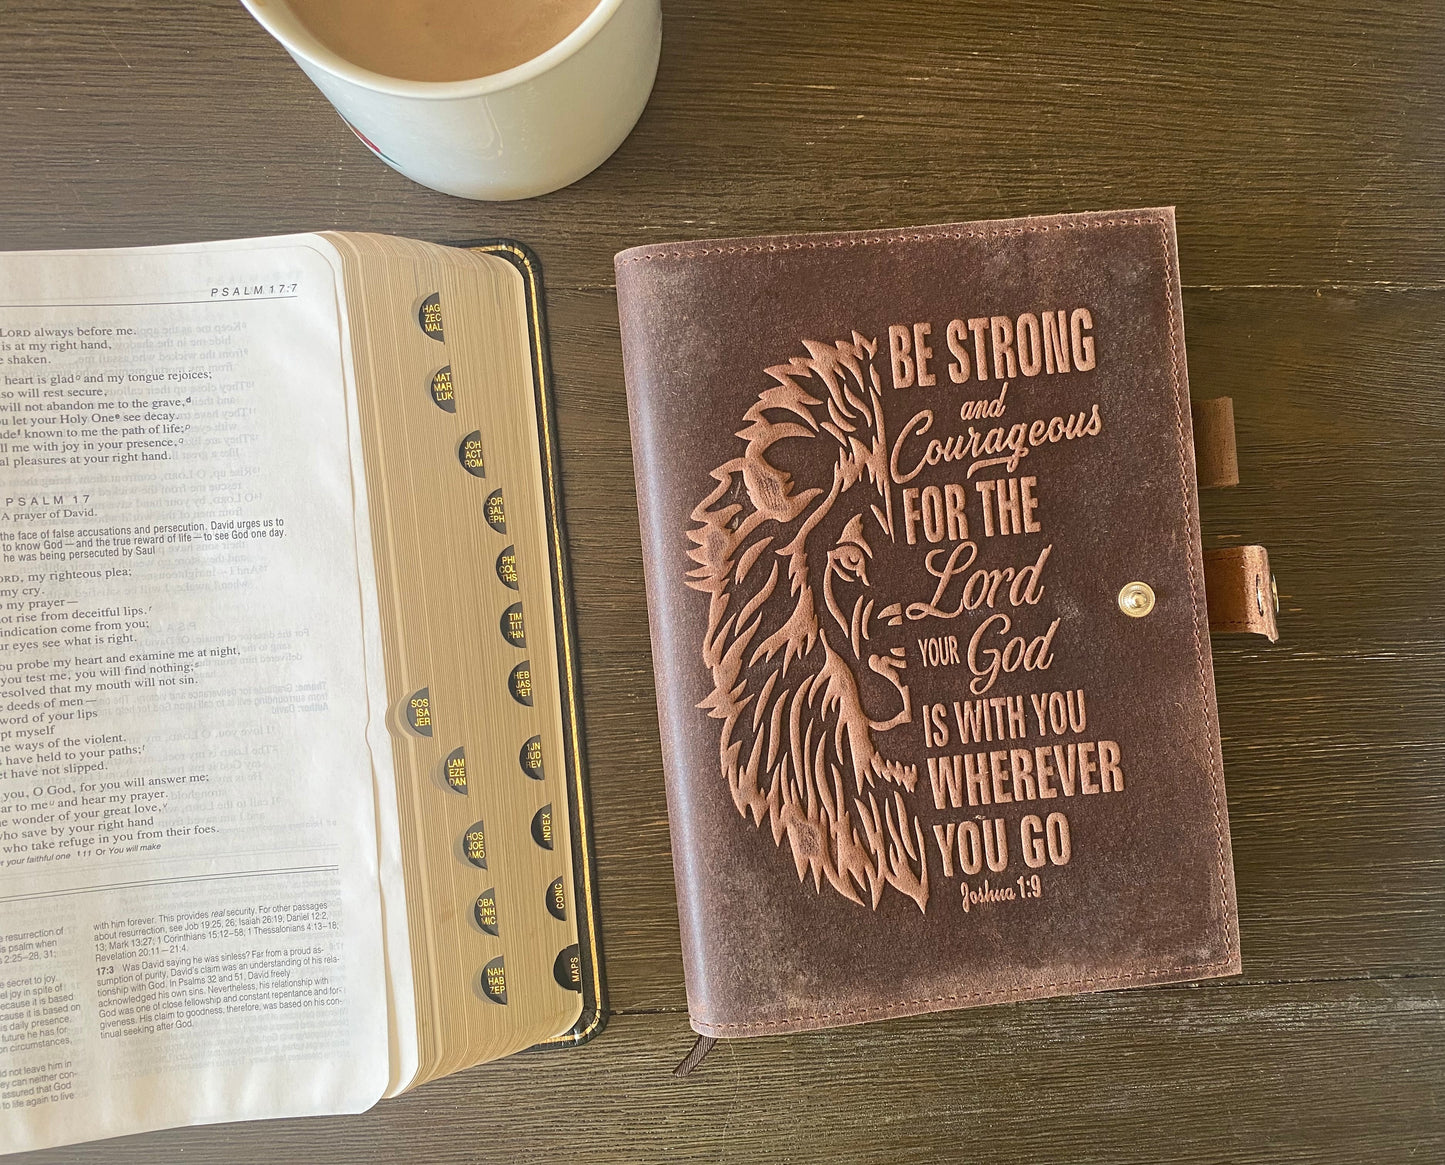 PSALM 17:7
LORD always before me.
is at my right hand,
shaken.
heart is glad and my tongue rejoices;
so will rest secure,
will not abandon me to the grave,
let your Holy One see decay.
known to me the path of life;
me with joy in your presence,
pleasures at your right hand.
PSALM 17
A prayer of David.
the face of false accusations and persecution, David urges us to
to know God—and the true reward of life—to see God one day.
he was being persecuted by Saul
my righteous plea;
my cry.
my prayer—
rise from deceitful lips.
indication come from you;
eyes see what is right.
probe my heart and examine me at night,
you test me, you will find nothing;
resolved that my mouth will not sin.
deeds of men—
word of your lips
myself
ways of the violent.
have held to your paths;
have not slipped.
you, O God, for you will answer me;
ear to me and hear my prayer.
wonder of your great love,
who save by your right hand
who take refuge in you from their foes.
your faithful one 11 Or You will make
resurrection of
psalm when
2:25–28, 31;
secret to joy
joy in spite of
because it is based
daily presence.
future he has for
circumstances,
not leave him in
can neither con-
assured that God
to life again to live
with him forever. This provides real security. For other passages
about resurrection, see Job 19:25, 26; Isaiah 26:19; Daniel 12:2,
13; Mark 13:27; 1 Corinthians 15:12–58; 1 Thessalonians 4:13–18;
Revelation 20:11—21:4.
17:3 Was David saying he was sinless? Far from a proud as-
sumption of purity, David's claim was an understanding of his rela-
tionship with God. In Psalms 32 and 51, David freely
acknowledged his own sins. Nevertheless, his relationship with
God was one of close fellowship and constant repentance and for-
giveness. His claim to goodness, therefore, was based on his con-
tinual seeking after God.
HAG
ZEC
MAL
MAT
MAR
LUK
JOH
ACT
ROM
COR
GAL
EPH
PHI
COL
THS
TIM
TIT
PHN
HEB
JAS
PET
1JN
JUD
REV
INDEX
CONC
MAPS
SOS
ISA
JER
LAM
EZE
DAN
HOS
JOE
AMO
OBA
JNH
MIC
NAH
HAB
ZEP
BE STRONG
and
Courageous
FOR THE
Lord
YOUR God
IS WITH YOU
WHEREVER
YOU GO
Joshua 1:9